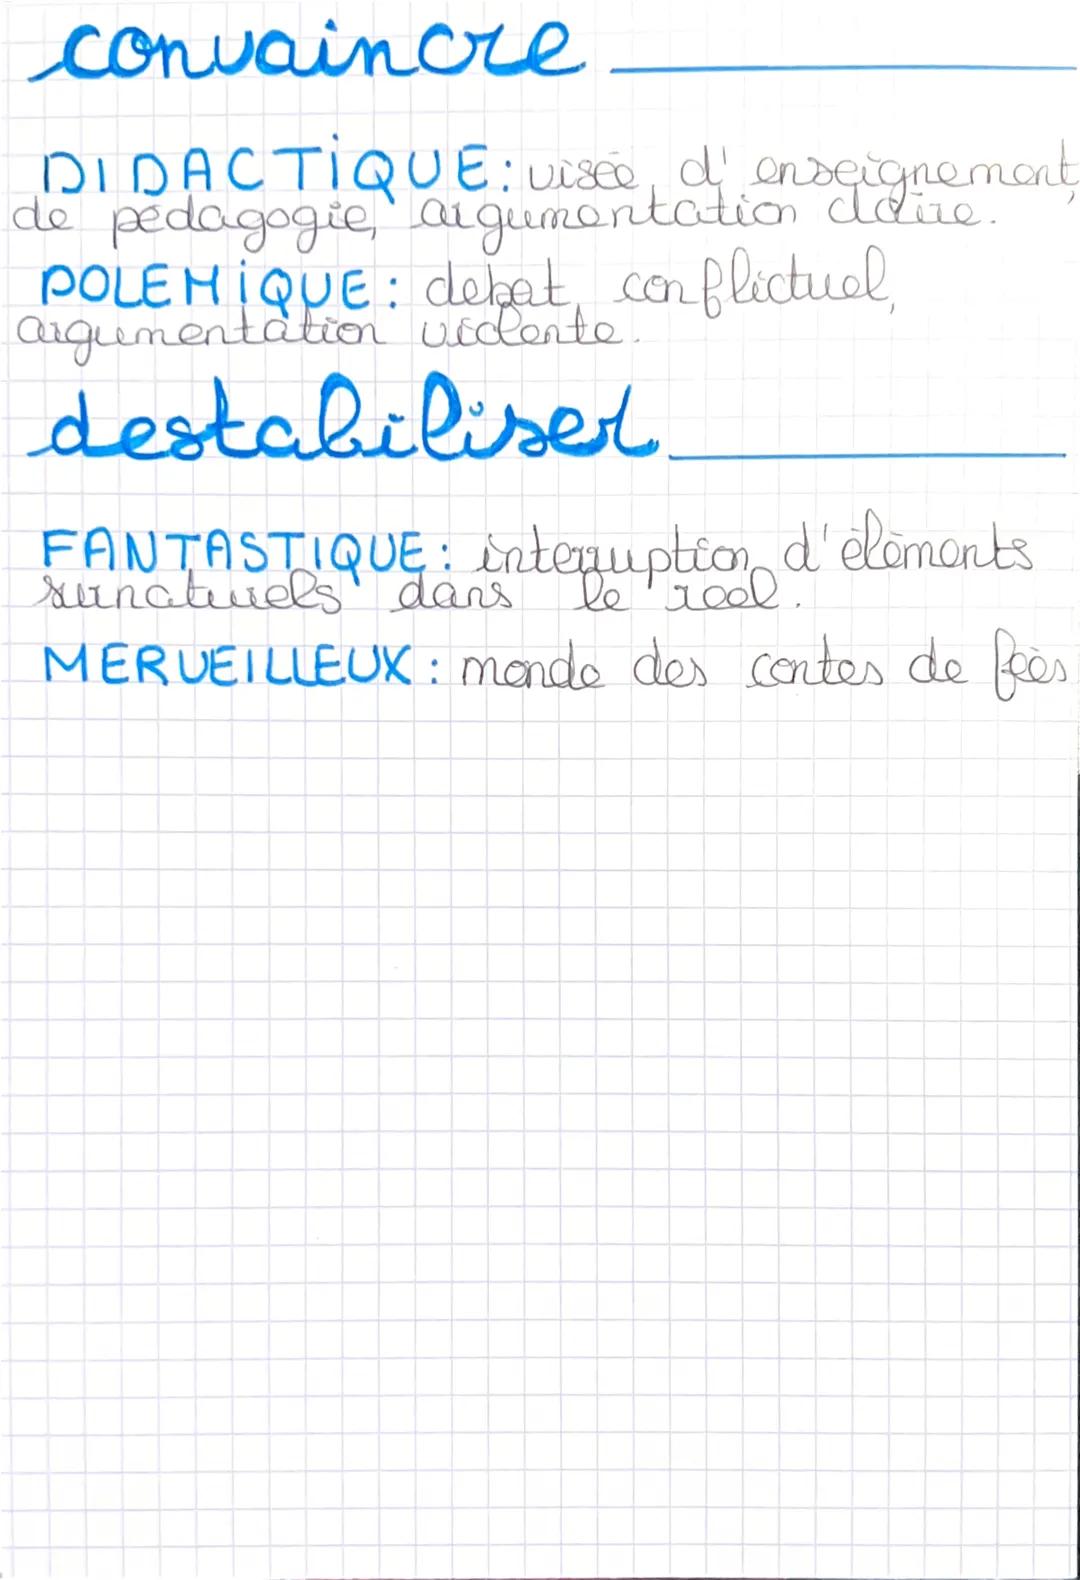 convaincre
DIDACTIQUE : visée, d'enseignement,
de pédagogie, argumentation claire.
POLEMIQUE : debat, conflictuel,
argumentation violente.
destabiliser
FANTASTIQUE : interruption d'éléments
surnaturels dans le réel.
MERVEILLEUX : monde des contes de fées